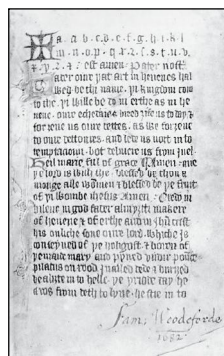 a. a. b. c. d. e. f. g. h. i. k. l
m. n. o. p. q. r. ꝛ. s. t. u. v.
est amen. Pater nost
oure pat art in heuenes hal
wed be thy name. þi kingdom com
to the. þi wille be do in erthe as in he
uene. oure eche daies breed ȝeue us to day ⁊
forȝeue us oure dettes. as we forȝeue
to oure dettouris. and lede us nott in to
temptacioun. bot delyuere us from yuel.
Heil marie ful of grace Amen. þe
lord is with the. blessed be thou a
monge alle wymmen ⁊ blessed be þe fruit
of þi wombe ihesus Amen. I bileue in
god fader almyȝti makere
of heuene ⁊ of erthe and in ihesu crist
his onliche sone oure lord. whiche is
conseyued of þe holi gost. ⁊ boren of
marie and pyned vnder pounce
pilatus on rood nailed dede ⁊ buried
to helle þe þridde day he
aros from deth to lyue. he in to
Jam: Woodeforde
1682.